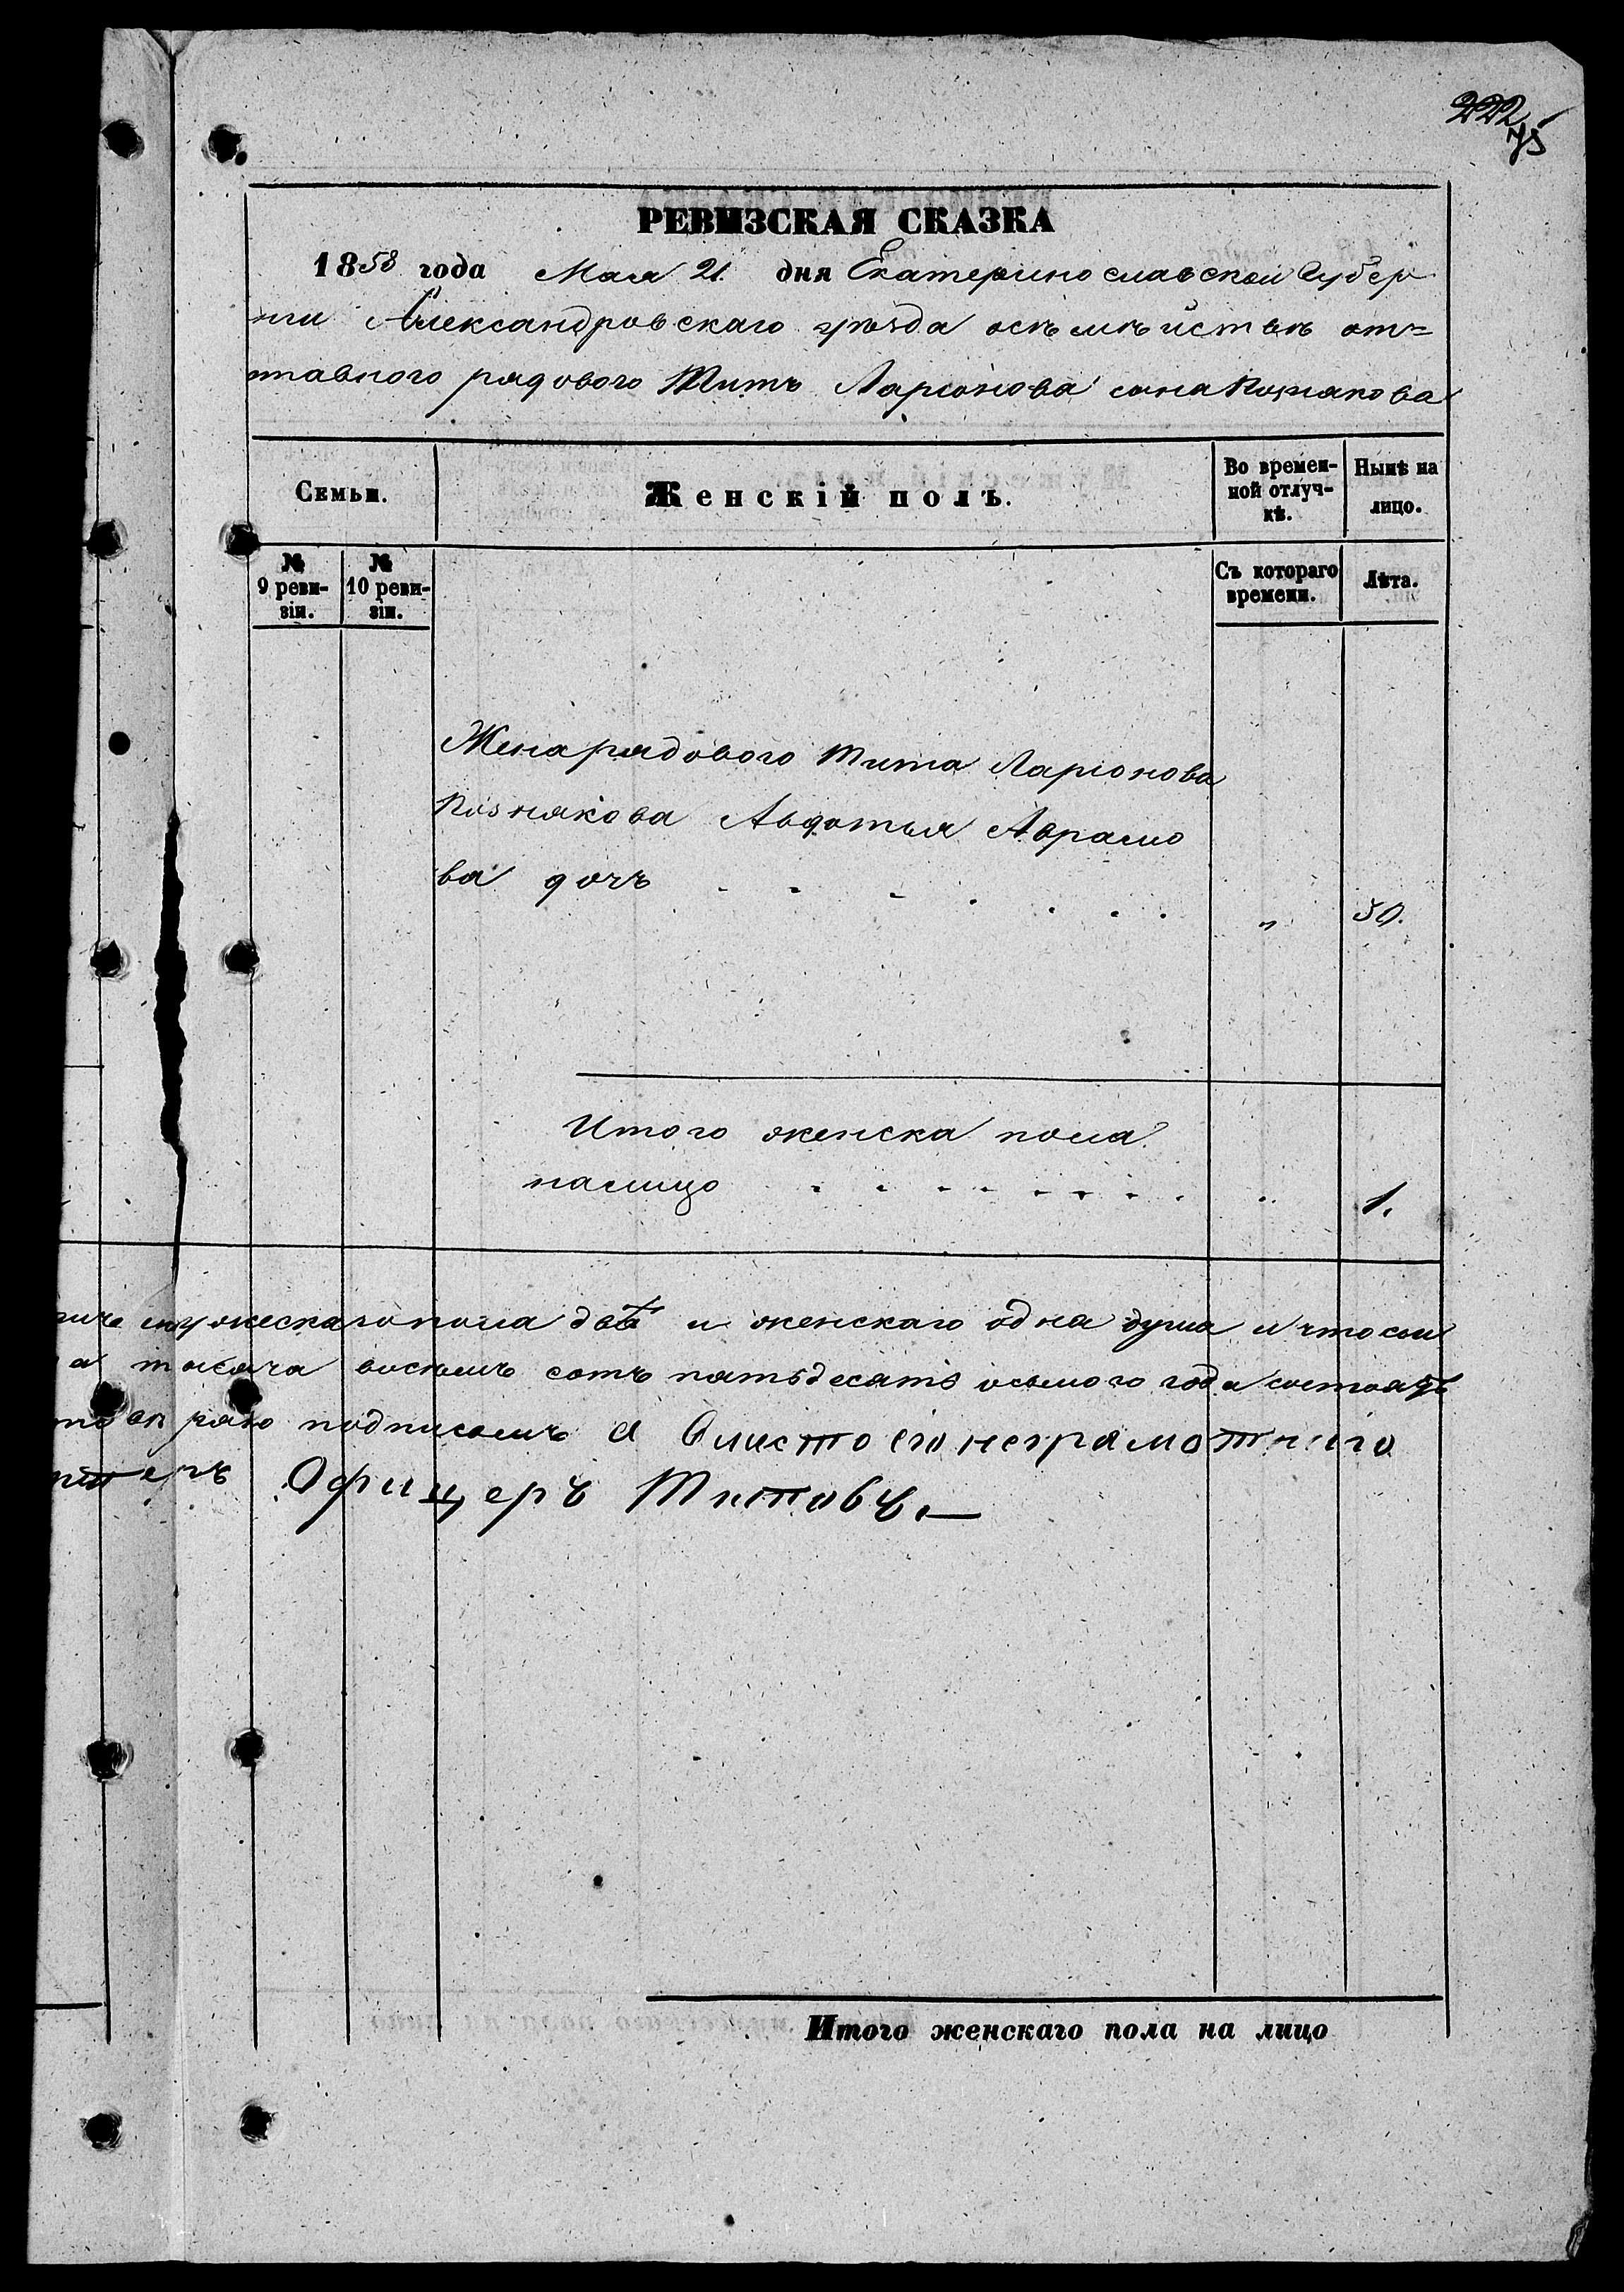 222
75
РЕВИЗСКАЯ СКАЗКА
1858 года Мая 21 дня Екатеринославской Губер
нии Александровскаго уезда о семействе от=
ставного рядового Титъ Ларіонова сына Познякова
Семьи.
Женскій полъ.
Во времен-
ной отлуч-
кѣ.
Нынѣ на
лицо.
№
9 реви-
зіи.
№
10 реви-
зіи.
Съ котораго
времени.
Лѣта.
Жена рядового Тита Ларіонова
Познякова Авдотья Аврамо
ва дочъ . . . . . . . " 50.
Итого женска пола
налицо . . . . . . . . " 1.
мужескаго пола две и женскаго одна душа и что
а тысяча восемъ сотъ пятьдесятъ осьмого года
подписомъ а Вместо его неграмотного
Офицеръ Титовъ.—
Итого женскаго пола на лицо